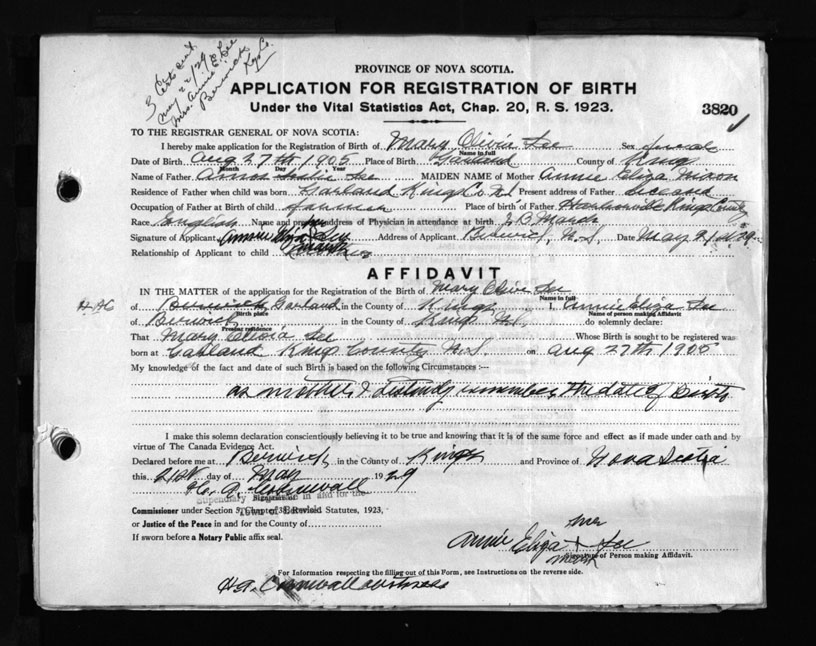 3 Certs sent
May 22/29
Mrs. Annie E. Lee
Berwick
Kgs Co.
PROVINCE OF NOVA SCOTIA.
APPLICATION FOR REGISTRATION OF BIRTH
Under the Vital Statistics Act, Chap. 20, R. S. 1923.
3820
TO THE REGISTRAR GENERAL OF NOVA SCOTIA:
I hereby make application for the Registration of Birth of Mary Olivia Lee Sex female
Name in full
Date of Birth Aug 27th 1905 Place of Birth Garland County of Kings
Month Day Year
Name of Father Lee MAIDEN NAME of Mother Annie Eliza Nixon
Residence of Father when child was born Garland Kings Co. N.S Present address of Father deceased
Occupation of Father at Birth of child farmer Place of birth of Father Kings County
Race English Name and address of Physician in attendance at birth March
Signature of Applicant Annie Eliza Lee Address of Applicant Berwick, N.S. Date May 21 1929
her mark
Relationship of Applicant to child Mother
AFFIDAVIT
IN THE MATTER of the application for Registration of the Birth of Mary Olivia Lee
Name in full
of Berwick Garland in the County of Kings I, Annie Eliza Lee
Birth place Name of person making Affidavit
of Berwick in the County of Kings N.S. do solemnly declare:
Precise residence
That Mary Olivia Lee Whose Birth is sought to be registered was
born at Garland Kings County N.S. on Aug 27th 1905
My knowledge of the fact and date of such Birth is based on the following Circumstances :—
as mother I distinctly remember the date of Birth
I make this solemn declaration conscientiously believing it to be true and knowing that it is of the same force and effect as if made under oath and by
virtue of The Canada Evidence Act.
Declared before me at Berwick in the County of Kings and Province of Nova Scotia
this 21st day of May 1929
H. A. Cornwall
Stipendiary Magistrate in and for the
Town of Berwick
Commissioner under Section 5, Chapter 38, Revised Statutes, 1923,
or Justice of the Peace in and for the County of
If sworn before a Notary Public affix seal.
her
Annie Eliza X Lee
mark
Signature of Person making Affidavit.
For Information respecting the filling out of this Form, see Instructions on the reverse side.
H.A. Cornwall witness